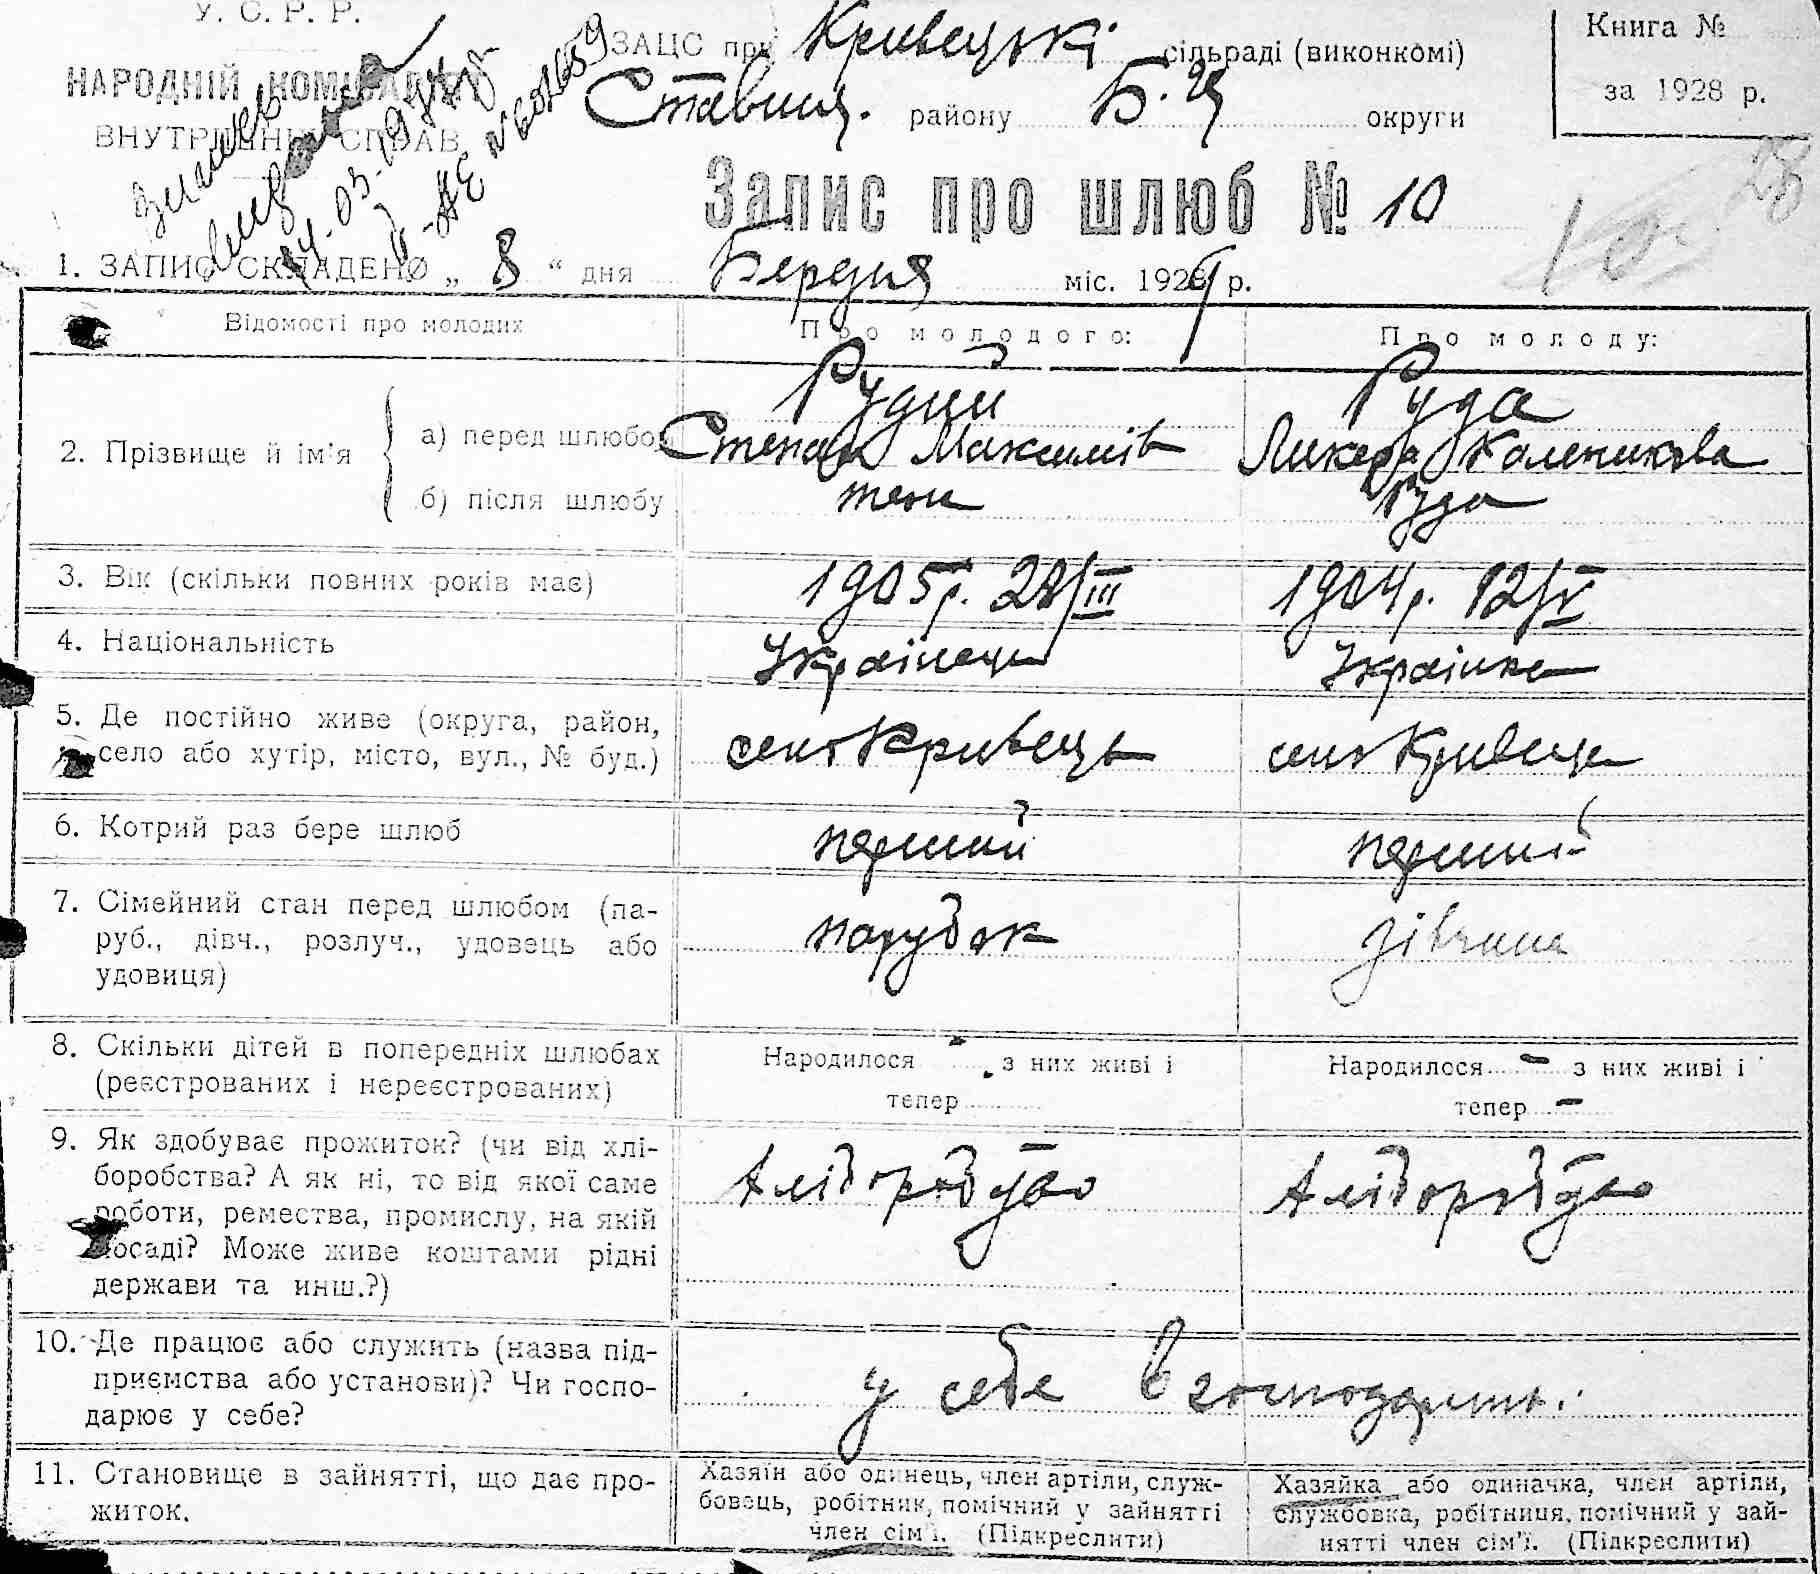 У. С. Р. Р.
НАРОДНІЙ КОМІСАРІЯТ
ВНУТРІШНІХ СПРАВ
14-03-1974 р
ЗАЦС при Кривецькі сільраді (виконкомі)
Ставищ. району Б. Ц округи
Книга №
за 1928 р.
28
Запис про шлюб № 10
10
1. ЗАПИС СКЛАДЕНО „ 8 “ дня Березня міс. 1929 р.
Відомості про молодих
Про молодого:
Про молоду:
2. Прізвище й ім'я
а) перед шлюбом
Рудий
Степан Максимів
Руда
Ликера Каленикова
б) після шлюбу
теж
Руда
3. Вік (скільки повних років має)
1905 р. 28/III
1904 р. 12/V
4. Національність
Українець
Українка
5. Де постійно живе (округа, район,
село або хутір, місто, вул., № буд.)
село Кривець
село Кривець
6. Котрий раз бере шлюб
перший
перший
7. Сімейний стан перед шлюбом (па-
руб., дівч., розлуч., удовець або
удовиця)
парубок
дівчина
8. Скільки дітей в попередніх шлюбах
(реєстрованих і нереєстрованих)
Народилося - з них живі і
тепер
Народилося - з них живі і
тепер -
9. Як здобуває прожиток? (чи від хлі-
боробства? А як ні, то від якої саме
роботи, ремества, промислу, на якій
посаді? Може живе коштами рідні
держави та инш.?)
Хліборобство
Хліборобство
10. Де працює або служить (назва під-
приємства або установи)? Чи госпо-
дарює у себе?
у себе в господарстві.
11. Становище в зайнятті, що дає про-
житок.
Хазяїн або одинець, член артіли, служ-
бовець, робітник, помічний у зайнятті
член сім'ї. (Підкреслити)
Хазяйка або одиначка, член артіли,
службовка, робітниця, помічний у зай-
нятті член сім'ї. (Підкреслити)